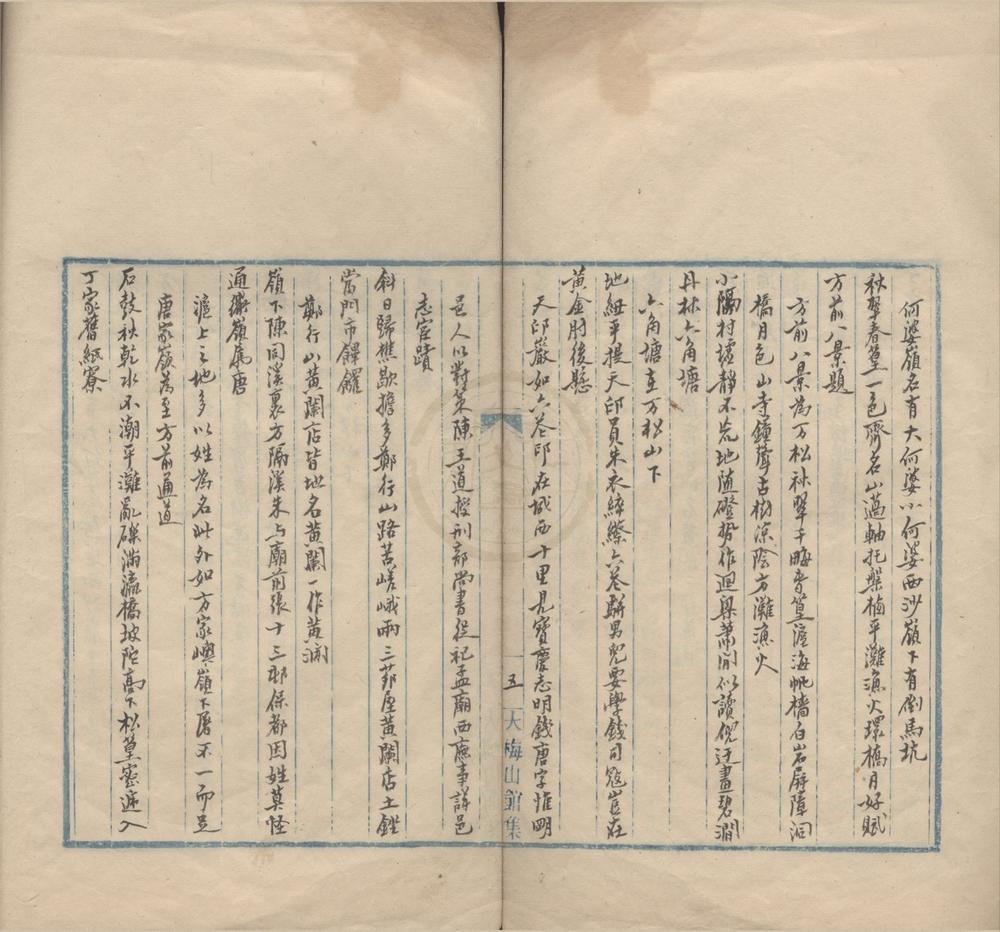 何婆嶺名有大何婆小何婆西沙嶺下有倒馬坑
秋翠春篁一色齊名山薖軸托槃栖平灘漁火環橋月好賦
方前八景題
方前八景為万松秋翠千畮春篁滄海帆檣白岩屏障洞
橋月色山寺鐘聲古樹涼陰方灘漁火
小隔村墟靜不荒地随磴勢作迴梁萧閒似讀倪迂畫碧澗
丹林六角塘
六角塘在万松山下
地紐平提天印員朱衣綷縩六卷駢男兒要學錢司寇豈在
黃金肘後懸
天印巖如六卷印在城西十里見寳慶志明錢唐字惟明
邑人以對策陳王道授刑部尚書從祀孟廟西廡事詳邑
志宦蹟
斜日歸樵歇擔多鄭行山路苦嵯峨兩三茆屋黃闌店土銼
當門市饆饠
鄭行山黃闌店皆地名黃闌一作黃湳
嶺下陳同溪裏方隔溪朱与廟前張十三耶保都因姓莫怪
通嶽嶺属唐
滬上之地多以姓為名此外如方家嶼嶺下屠不一而足
唐家嶺為至方前通道
石鼓秋乾水不潮平灘亂礫滿瀛橋坡陀高下松篁密遥入
丁家舊紙寮
五
大梅山館集